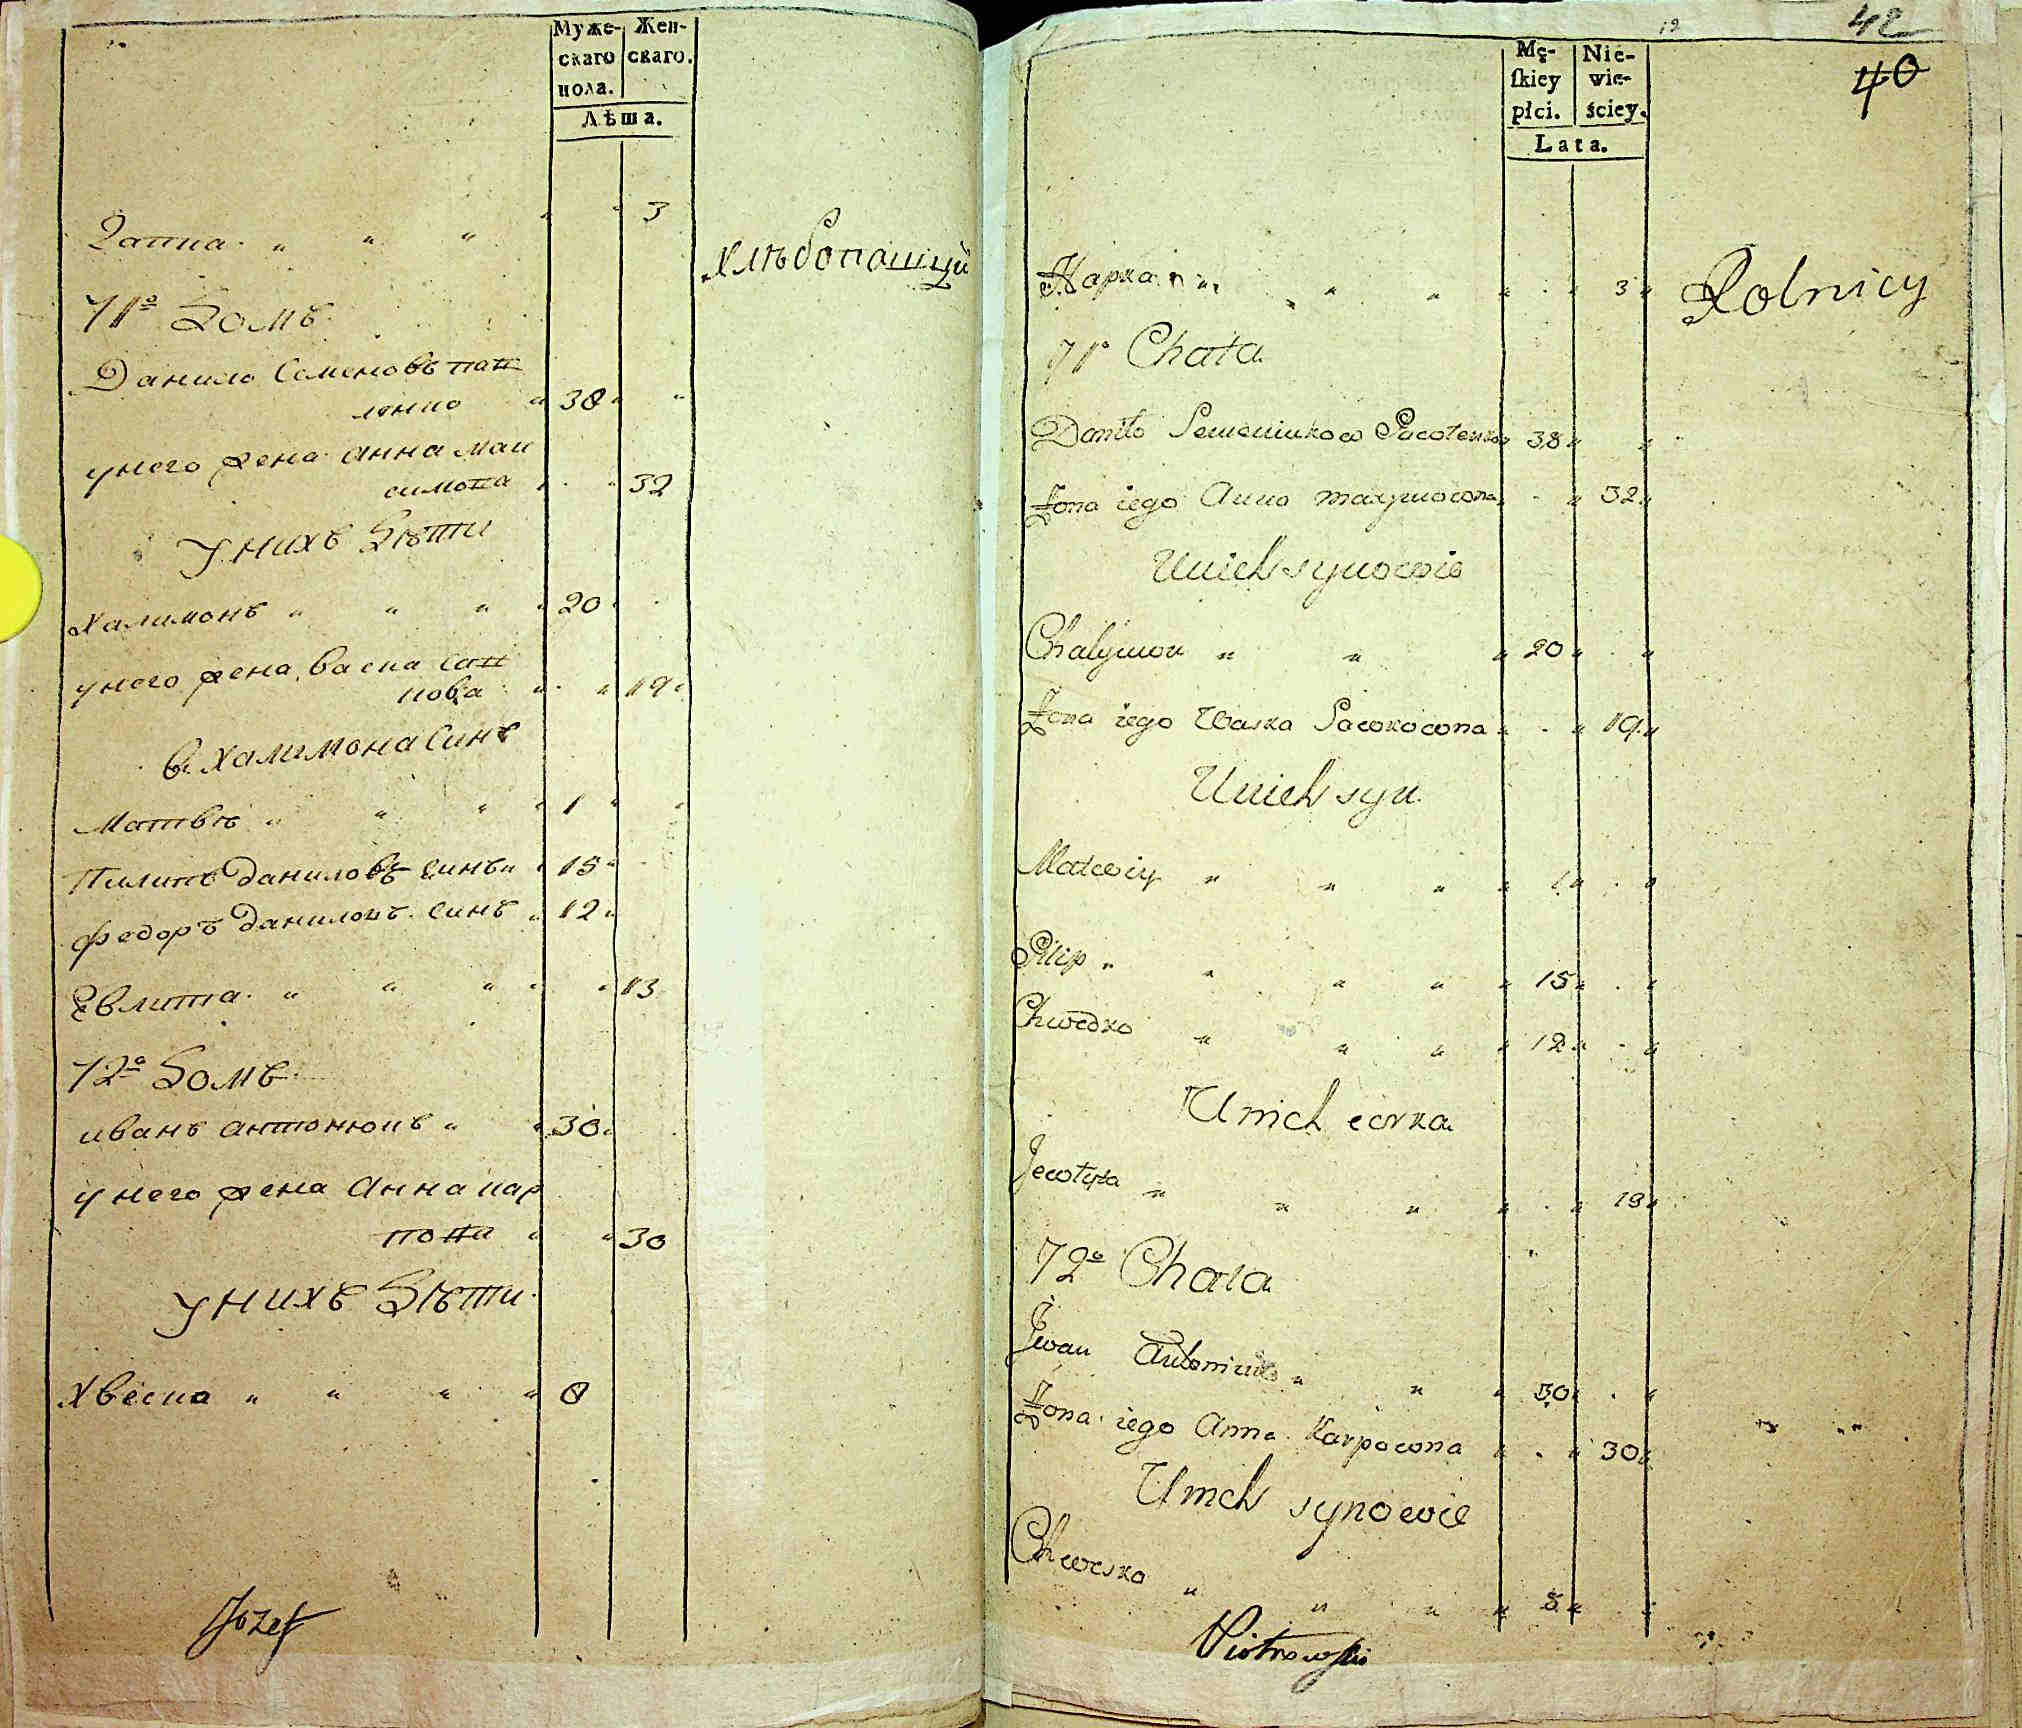 Муже-
скаго
пола.
Жен-
скаго.
Лѣта.
Гапка " " " " " 3
Хлѣбопашцы
71º Домъ
Данило Семеновъ пав
ленко " 38 " "
у него жена Анна мак
симова " " 32
у нихъ Дѣти
Халимонъ " " " " 20 "
у него жена Васка сав
кова " " 19 "
в Халимона Синъ
Матвѣ " " " " 1 " "
Пилипъ Даниловъ Синъ " " 15 "
Федоръ Даниловъ Синъ " 12 "
Евлита " " " " " 13
72º Домъ
иванъ Антонюкъ " " 30 "
у него жена Анна кар
пова " " 30
у нихъ Дѣти
Хвеска " " " " 8
Jozef
42
40
Mę-
skiey
płci.
Nie-
wie-
ściey.
Lata.
Hapka " " " " " " " 3 "
Rolnicy
71º Chata
Daniło Semeniukow Pawlenko " 38 " "
Żona iego Anna Maxymowona " " 32 "
U nich synowie
Chalymon " " " 20 " "
Żona iego Waska Sawkowona " " 19 "
U nich syn
Matwiy " " " " 1 " "
Pilip " " " " " 15 " "
Chwedko " " " " 12 " "
U nich corka
Jewłyta " " " " " 13 "
72º Chata
Jwan Antoniuk " " " 30 " "
Żona iego Anna Karpowona " " 30 "
U nich synowie
Chweska " " " " 8 " "
Piotrowski